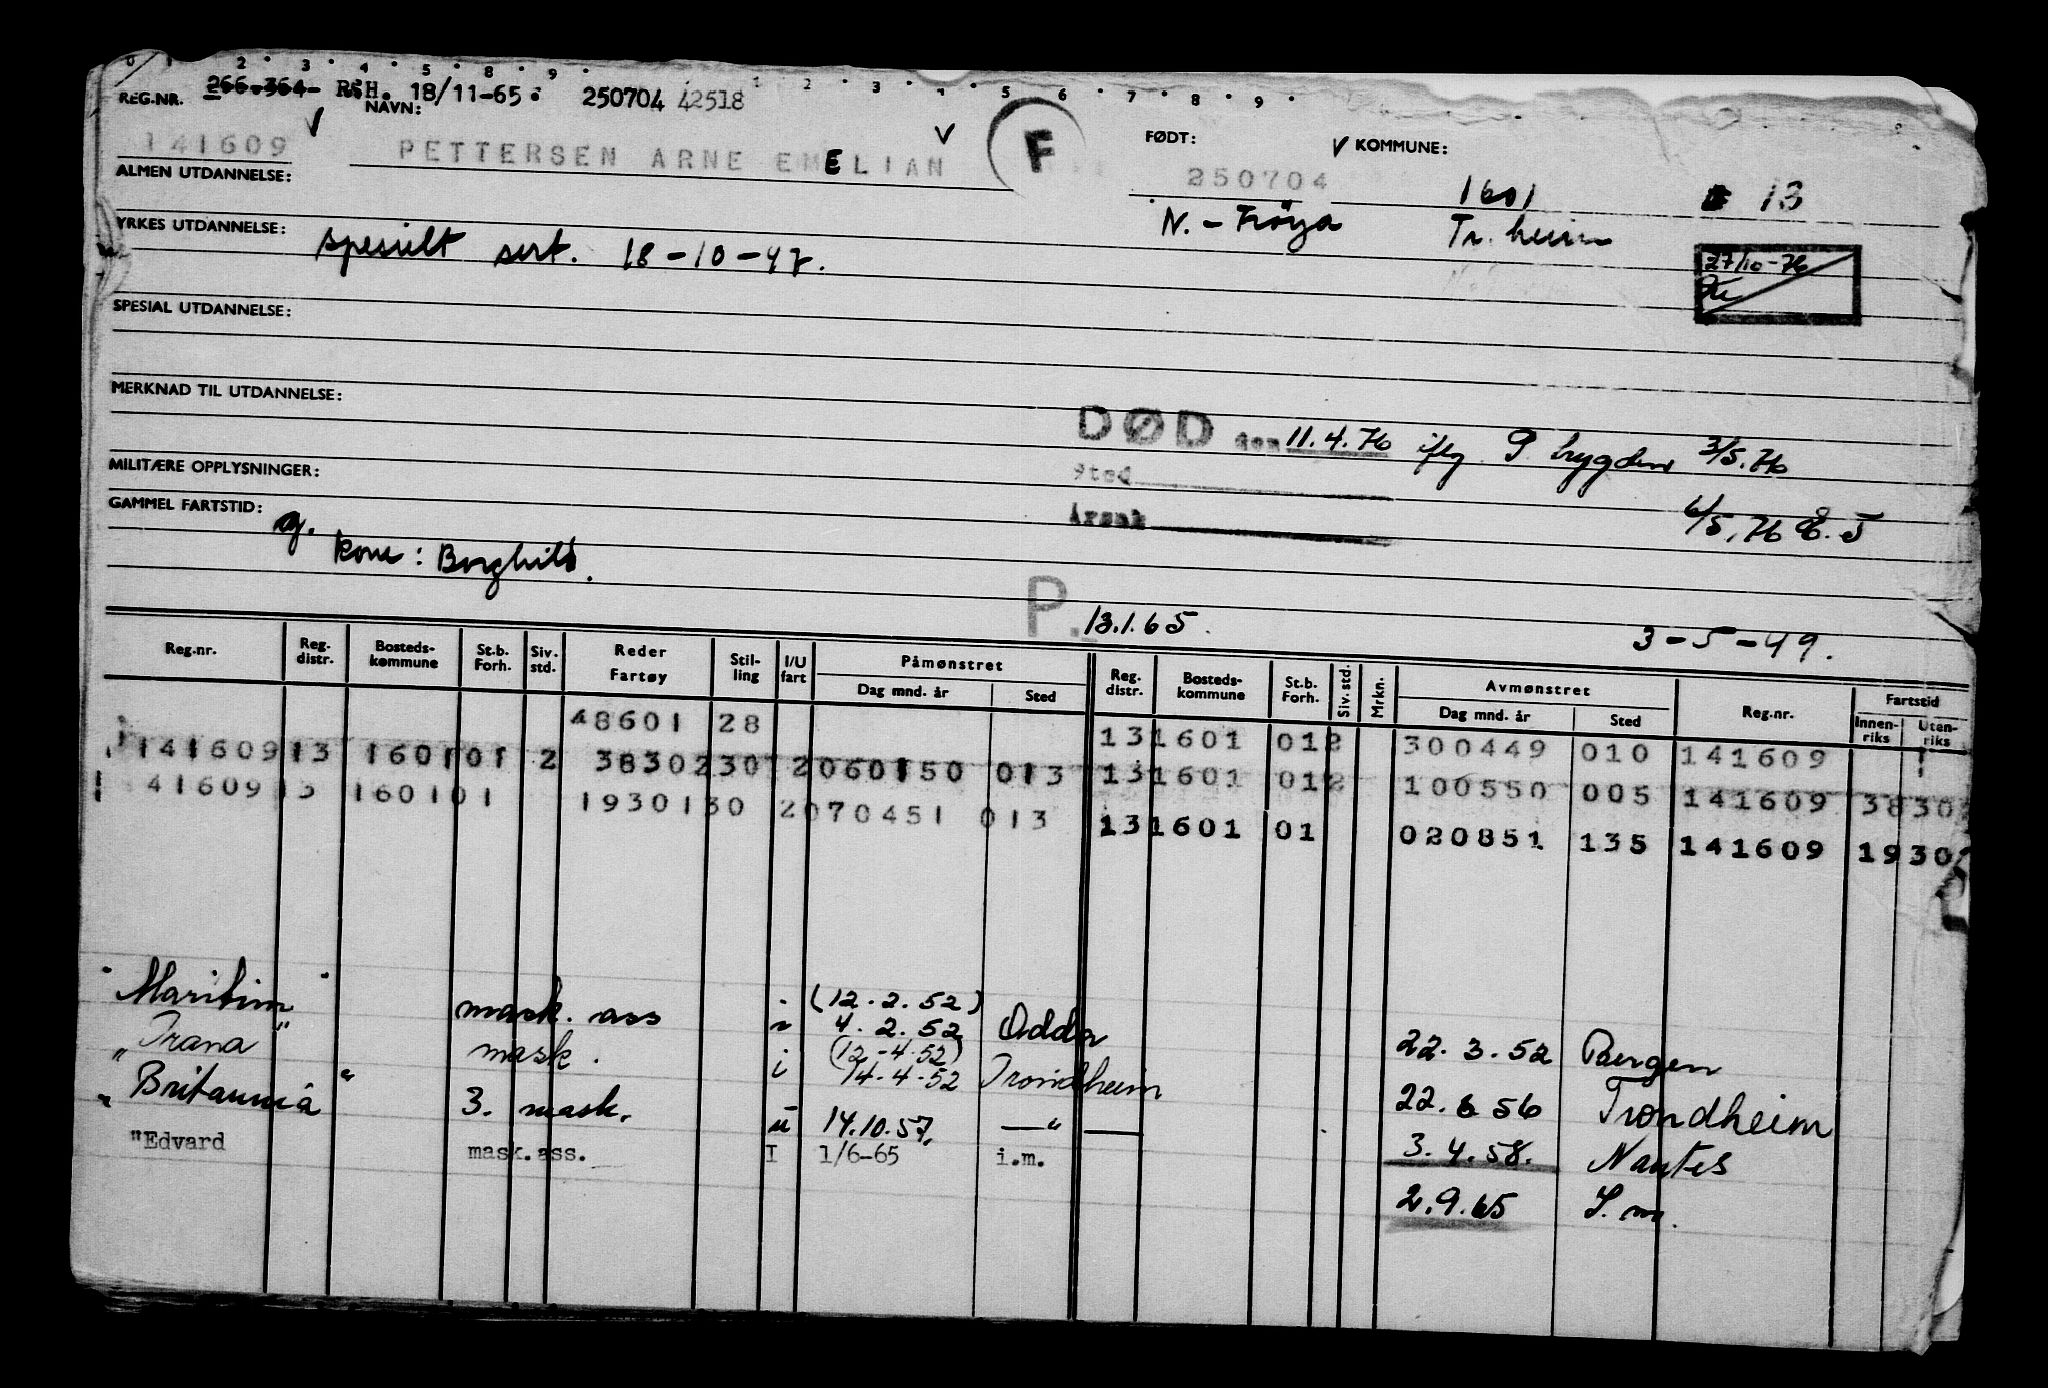 0 1 2 3 4 5 8 9 1 2 3 4 5 6 7 8 9
REG.NR. 266.364- RSH. 18/11-65 250704 42518
NAVN: FØDT: KOMMUNE:
141609 PETTERSEN ARNE EMELIAN F 250704 1601 13
ALMEN UTDANNELSE: N. - Frøya Tr. heim
YRKES UTDANNELSE: spesielt sert. 18-10-47.
27/10-76
SPESIAL UTDANNELSE:
MERKNAD TIL UTDANNELSE:
DØD den 11.4.76 iflg P. trygden 3/5.76
MILITÆRE OPPLYSNINGER: Sted
GAMMEL FARTSTID: Årsak 6/5.76
g. kone: Borghild.
P. 13.1.65. 3-5-49.
Reg.nr. Reg. distr. Bosteds-kommune St.b. Forh. Siv. std. Reder Fartøy Stil-ling I/U fart Påmønstret Dag mnd. år Sted Reg. distr. Bosteds-kommune St.b. Forh. Siv. std. Mrkn. Avmønstret Dag mnd. år Sted Reg.nr. Fartstid Innen-riks Uten-riks
48601 28 13 1601 012 300449 010 141609
141609 13 1601 01 2 38302 30 2 060150 013 13 1601 012 100550 005 141609 38 30
141609 13 1601 01 19301 30 2 070451 013 13 1601 01 020851 135 141609 19 30
"Maritim" mask. ass i (12.2.52) 4.2.52 Odda 22.3.52 Bergen
"Trana" mask. i (12.-4.52) 14-4-52 Trondheim 22.6 56 Trondheim
"Britannia" 3. mask. u 14.10.57. —"— 3.4.58. Nantes
"Edvard mask.ass. I 1/6-65 i.m. 2.9.65 I.m.